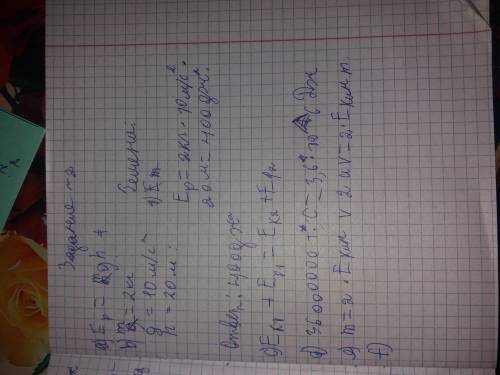 Задание ~2
a) Ep = mgh +
b) m = 2кг
g = 10 м/с²
h = 20 м :
Решение
1) Em
Ep = 2кг · 10м/с² ·
20м = 400дж.
Ответ: 400дж
c) Eк1 + Eр1 = Eк2 + Eр2
d) 3600000 = 3,6 · 10^6 Дж
e) m = 2 · Eкин v 2 av = 2 · Eкин m
f)